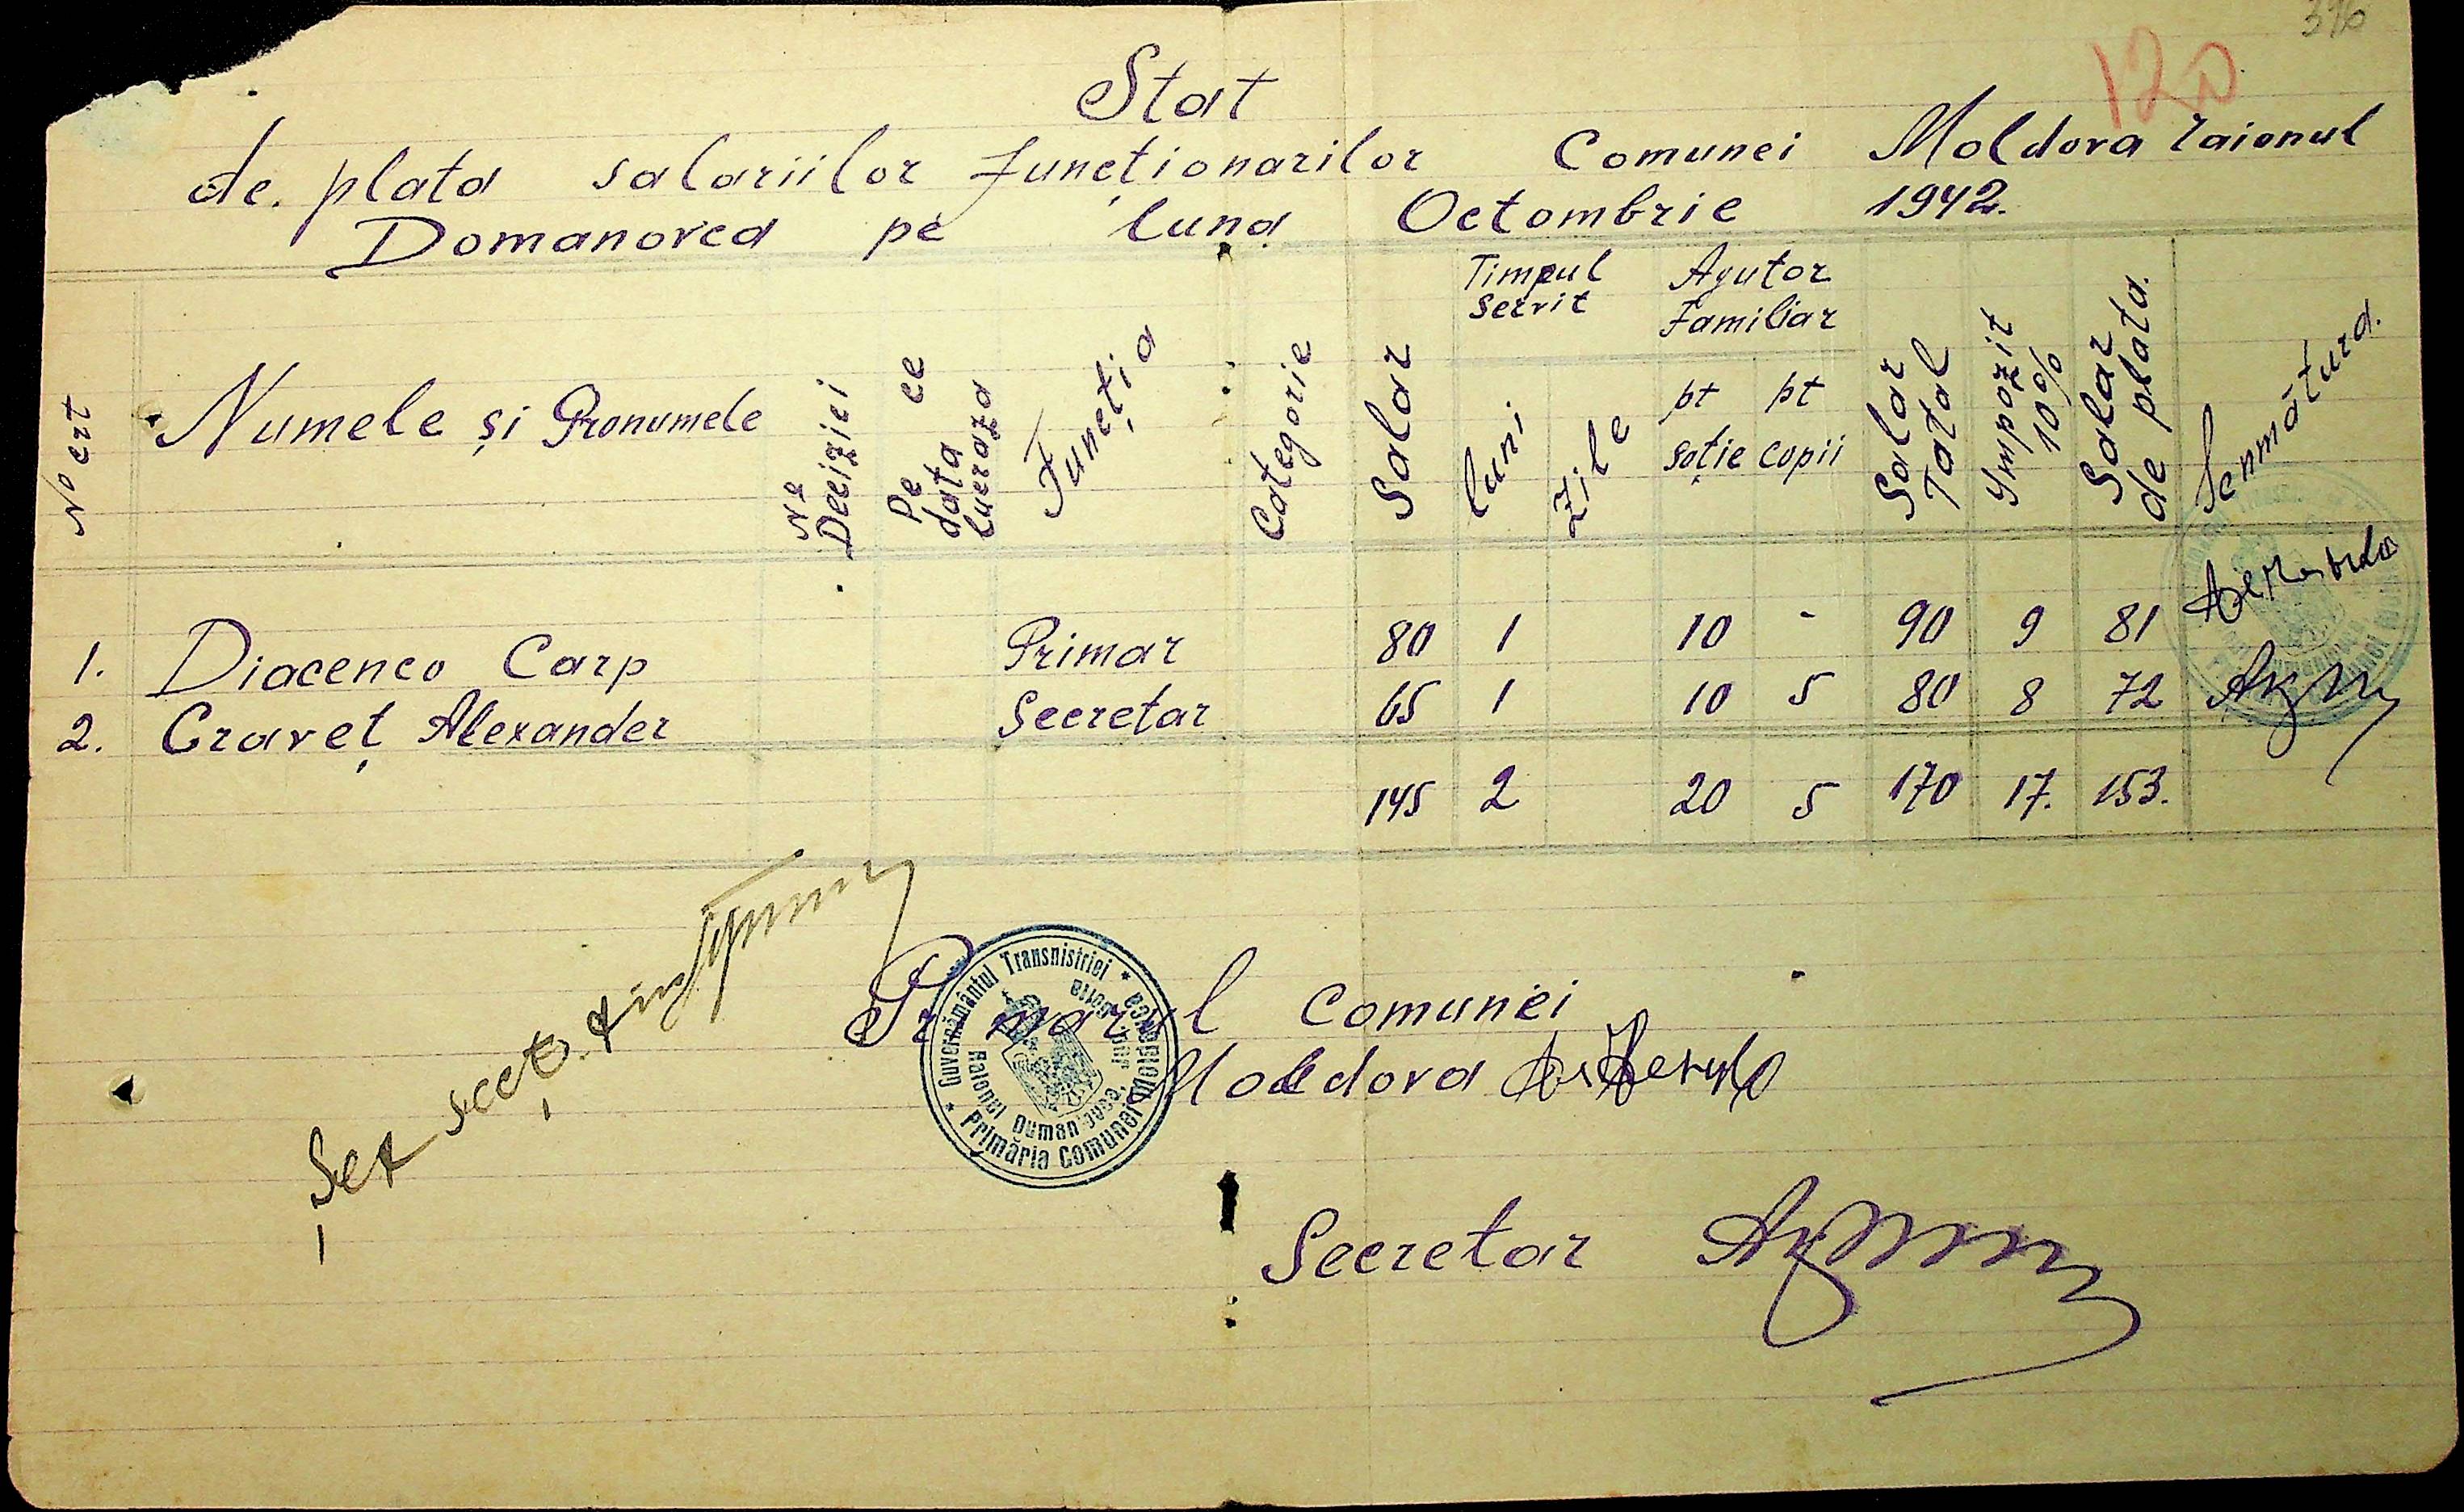 396
120
Stat
de. plata salariilor funcționarilor Comunei Moldova raionul
Domanovca pe luna Octombrie 1942.
No crt
Numele și Pronumele
No Deciziei
Pe ce data lucraza
Funcția
Categorie
Salar
Timpul servit
luni
zile
Ayutor Familiar
pt soție
pt copii
Salar Total
Ympozit 10%
Salar de plata.
Senmătura.
1. Diacenco Carp Primar 80 1 10 - 90 9 81
2. Craveț Alexander Secretar 65 1 10 5 80 8 72
145 2 20 5 170 17. 153.
Primarul Comunei
Moldova
* Guvernământul Transnistriei * Primăria Comunei Moldovca
Raionul Duman
Secretar